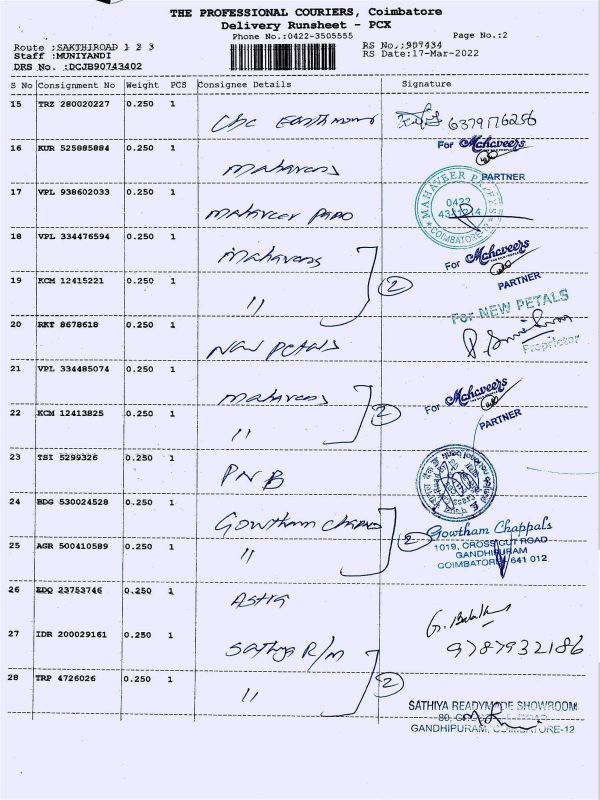 THE PROFESSIONAL COURIERS, Coimbatore
Delivery Runsheet - PCX
Phone No.:0422-3505555 Page No.:2
Route :SAKTHIROAD 1 2 3 RS No.:907434
Staff :MUNIYANDI RS Date:17-Mar-2022
DRS No. :DCJB90743402
S No Consignment No Weight PCS Consignee Details Signature
15 TRZ 280020227 0.250 1
6379176256
16 KUR 525885884 0.250 1 For Mahaveers
mahaveers PARTNER
17 VPL 938602033 0.250 1 MAHAVEER
0422
mahaveer COIMBATORE
18 VPL 334476594 0.250 1 mahaveers For Mahaveers
2 PARTNER
19 KCM 12415221 0.250 1 "
For NEW PETALS
20 RKT 8678618 0.250 1 New Petals Proprietor
21 VPL 334485074 0.250 1 mahaveers For Mahaveers
2 PARTNER
22 KCM 12413825 0.250 1 "
23 TSI 5299326 0.250 1 PNB
24 BDG 530024528 0.250 1 Gowtham Chappals
2 Gowtham Chappals
25 AGR 500410589 0.250 1 " 1019, CROSS CUT ROAD
GANDHIPURAM
COIMBATORE 641 012
26 EDQ 23753746 0.250 1 Astra
27 IDR 200029161 0.250 1 Sathya R/m 9787932186
2
28 TRP 4726026 0.250 1 "
SATHIYA READYMADE SHOWROOM
80,
GANDHIPURAM, COIMBATORE-12